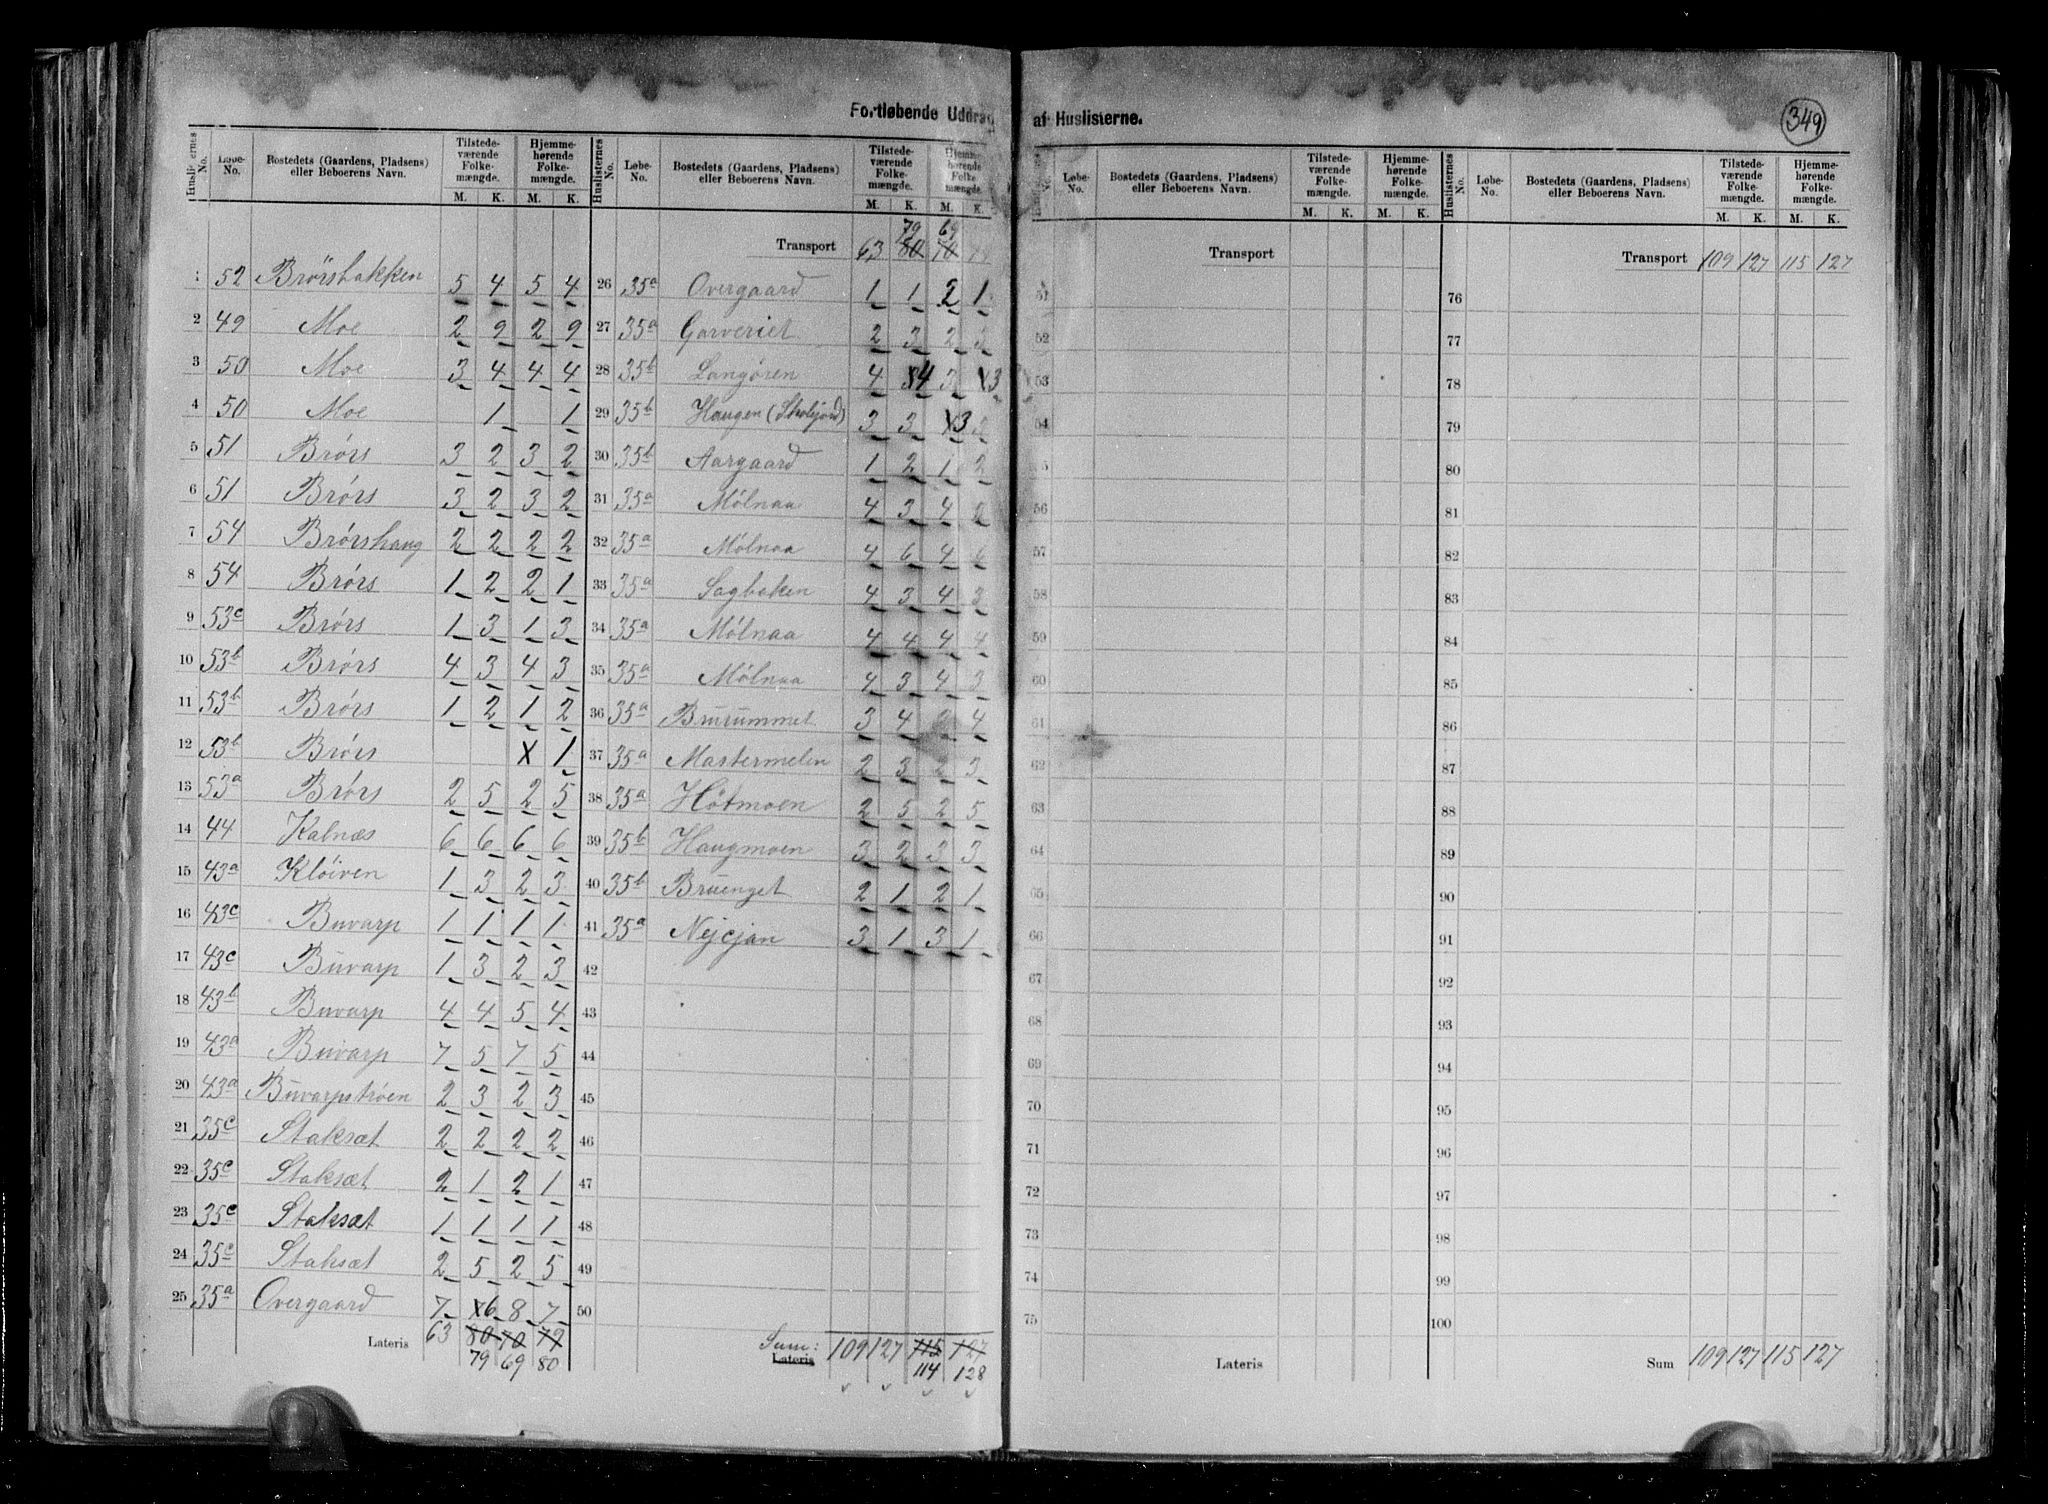 Fortløbende Uddrag af Huslisterne.
349
Huslisternes No. Løbe-No. Bostedets (Gaardens, Pladsens) eller Beboerens Navn. Tilstede-værende Folke-mængde. M. K. Hjemme-hørende Folke-mængde. M. K.
1 52 Brørsbakken 5 4 5 4
2 49 Moe 2 9 2 9
3 50 Moe 3 4 4 4
4 50 Moe 1 1
5 51 Brørs 3 2 3 2
6 51 Brørs 3 2 3 2
7 54 Brørshaug 2 2 2 2
8 54 Brørs 1 2 2 1
9 53c Brørs 1 3 1 3
10 53b Brørs 4 3 4 3
11 53b Brørs 1 2 1 2
12 53b Brørs X 1
13 53a Brørs 2 5 2 5
14 44 Kalnæs 6 6 6 6
15 43a Kløiven 1 3 2 3
16 43c Buvarp 1 1 1 1
17 43c Buvarp 1 3 2 3
18 43b Buvarp 4 4 5 4
19 43a Buvarp 7 5 7 5
20 43a Buvarpstrøen 2 3 2 3
21 35c Staksæt 2 2 2 2
22 35c Staksæt 2 1 2 1
23 35c Staksæt 1 1 1 1
24 35c Staksæt 2 5 2 5
25 35a Overgaard 7 6 8 7
Lateris 63 80 70 79
79 69 80
Huslisternes No. Løbe-No. Bostedets (Gaardens, Pladsens) eller Beboerens Navn. Tilstede-værende Folke-mængde. M. K. Hjemme-hørende Folke-mængde. M. K.
79 69
Transport 63 80 70
26 35a Overgaard 1 1 2 1
27 35a Garveriet 2 3 2 3
28 35b Langøren 4 4 3 3
29 35b Haugen (Skoljord) 3 3 3 2
30 35b Aargaard 1 2 1 2
31 35a Mølnaa 4 3 4 2
32 35a Mølnaa 4 6 4 6
33 35a Sagbaken 4 3 4 3
34 35a Mølnaa 4 4 4 4
35 35a Mølnaa 4 3 4 3
36 35a Bururmmet 3 4 4
37 35a Mastermelen 2 3 2 3
38 35a Høtmoen 2 5 2 5
39 35b Haugmoen 3 2 3 3
40 35b Bruenget 2 1 2 1
41 35a Nejcjan 3 1 3 1
42
43
44
45
46
47
48
49
50
Sum: 109 127 115 127
Lateris 114 128
Løbe-No. Bostedets (Gaardens, Pladsens) eller Beboerens Navn. Tilstede-værende Folke-mængde. M. K. Hjemme-hørende Folke-mængde. M. K.
Transport
51
52
53
54
56
57
58
59
60
61
62
63
64
65
66
67
68
69
70
71
72
73
74
75
Lateris
Huslisternes No. Løbe-No. Bostedets (Gaardens, Pladsens) eller Beboerens Navn. Tilstede-værende Folke-mængde. M. K. Hjemme-hørende Folke-mængde. M. K.
Transport 109 127 115 127
76
77
78
79
80
81
82
83
84
85
86
87
88
89
90
91
92
93
94
95
96
97
98
99
100
Sum 109 127 115 127